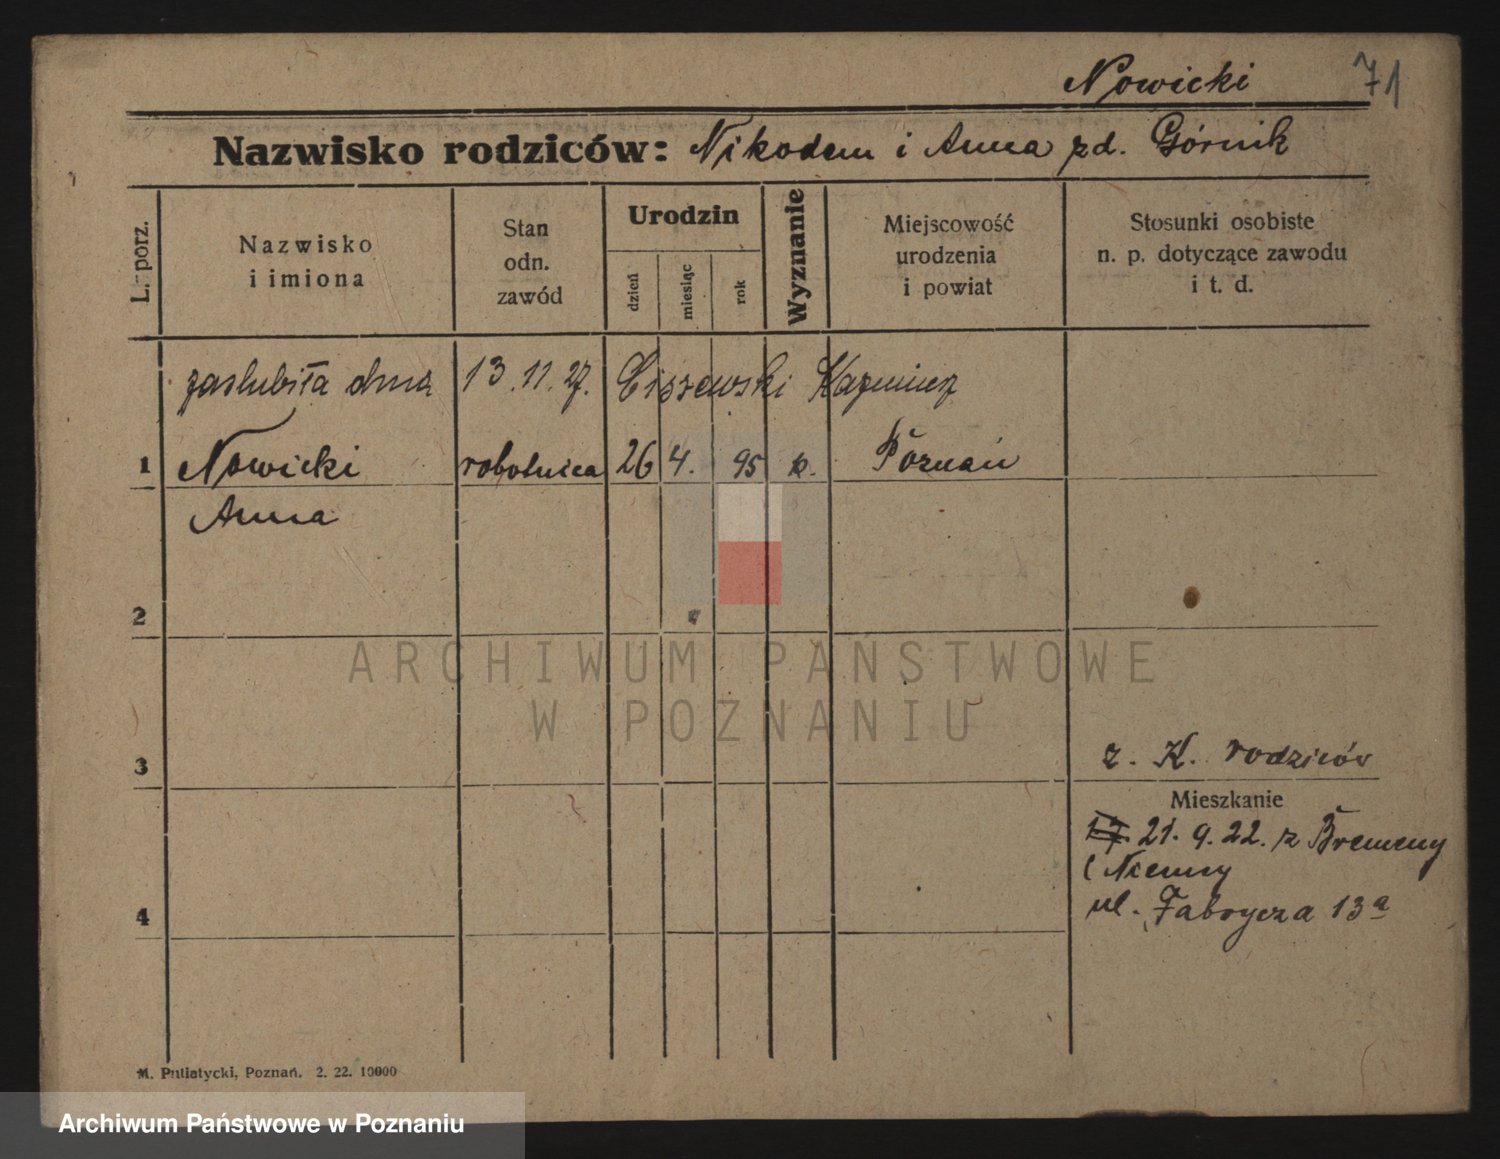 Nowicki 71
Nazwisko rodziców: Nikodem i Anna zd. Górnik
L. porz.
Nazwisko
i imiona
Stan
odn.
zawód
Urodzin
dzień
miesiąc
rok
Wyznanie
Miejscowość
urodzenia
i powiat
Stosunki osobiste
n. p. dotyczące zawodu
i t. d.
zaślubiła dnia 13.11.27. Ciszewski Kazimierz
1 Nowicki robotnica 26 4. 95 k. Poznań
Anna
2
ARCHIWUM PAŃSTWOWE
W POZNANIU
3 z. K. rodziców
Mieszkanie
17. 21. 9. 22. z Bremeny
(Niemcy
4 ul. Fabrycza 13a
M. Putiatycki, Poznań. 2. 22. 10000
Archiwum Państwowe w Poznaniu